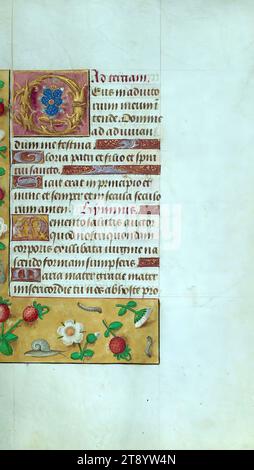 Ad tertiam
Deus in adiuto
rium meum in
tende. Domine
ad adiuuan
dum me festina
Gloria patri et filio et spiri
tui sancto
Sicut erat in principio et
nunc et semper et in secula seculo
rum amen. Hymnus.
Memento salutis auctor
quod nostri quondam
corporis ex illibata uirgine na
scendo formam sumpseris
Maria mater gracie mater
misericordie tu nos ab hoste pro
alamy
Image ID: 2T81YW4N
www.alamy.com